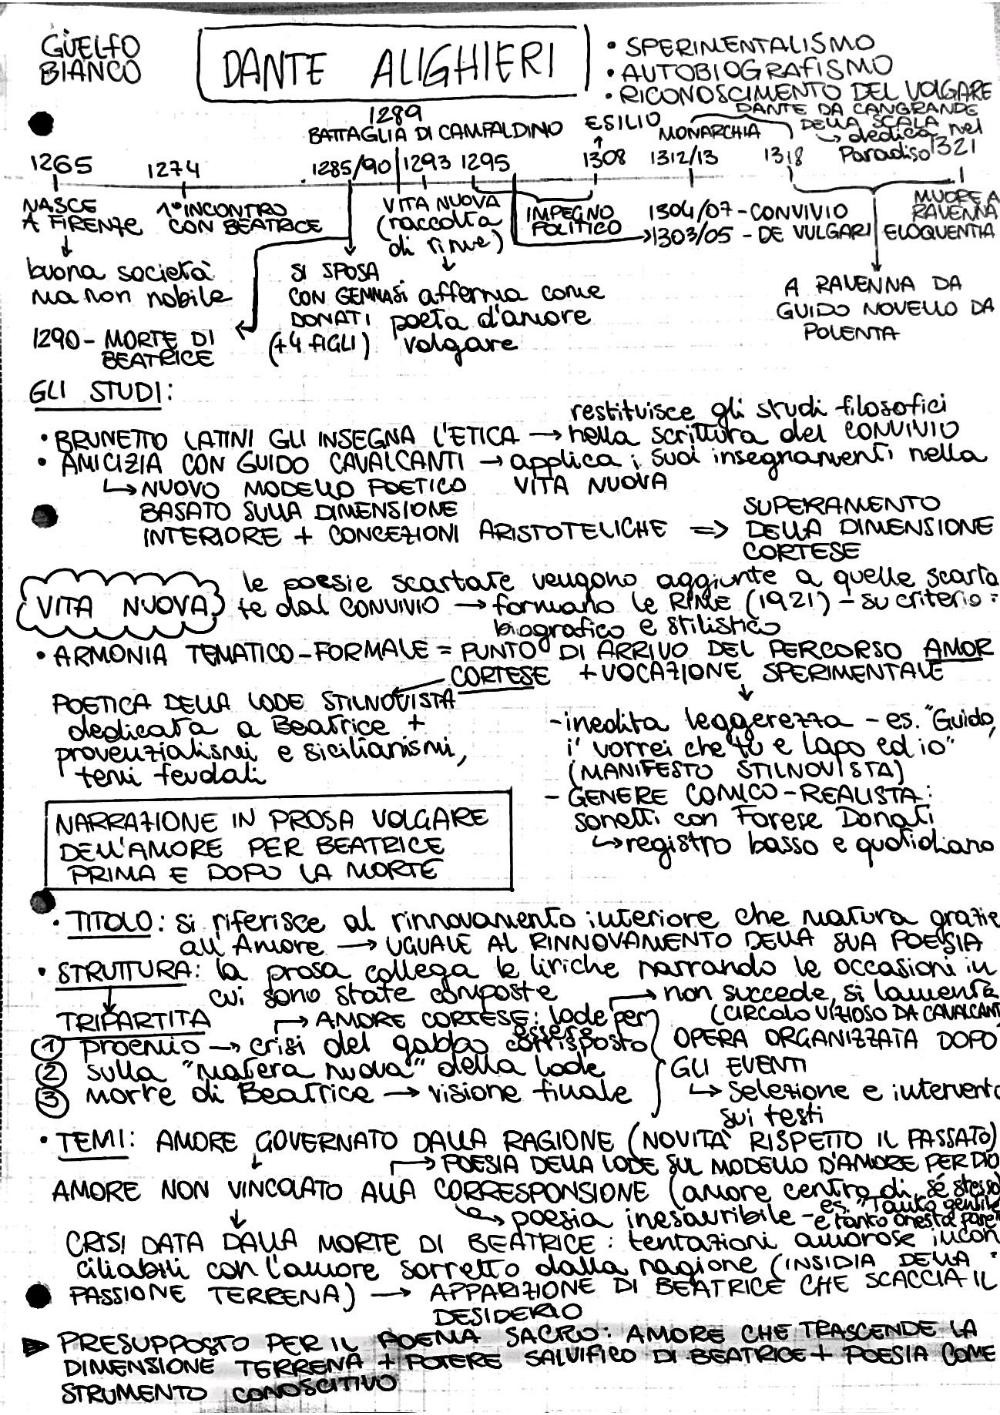 GUELFO
BIANCO
DANTE ALIGHIERI
• SPERIMENTALISMO
• AUTOBIOGRAFISMO
• RICONOSCIMENTO DEL VOLGARE
1289
BATTAGLIA DI CAMPALDINO
ESILIO
MONARCHIA
DANTE DA CANGRANDE
DELLA SCALA
→ dedica nel
Paradiso
1265
1274
1285/90
1293
1295
1308
1312/13
1318
1321
NASCE
A FIRENZE
1° INCONTRO
CON BEATRICE
VITA NUOVA
(raccolta
di rime)
IMPEGNO
POLITICO
1304/07 - CONVIVIO
→ 1303/05 - DE VULGARI ELOQUENTIA
MUORE A
RAVENNA
buona società
ma non nobile
SI SPOSA
CON GEMMA
DONATI
(+4 FIGLI)
si afferma come
poeta d'amore
volgare
A RAVENNA DA
GUIDO NOVELLO DA
POLENTA
1290 - MORTE DI
BEATRICE
GLI STUDI:
• BRUNETTO LATINI GLI INSEGNA L'ETICA → restituisce gli studi filosofici
nella scrittura del CONVIVIO
• AMICIZIA CON GUIDO CAVALCANTI → applica i suoi insegnamenti nella
VITA NUOVA
↳ NUOVO MODELLO POETICO
BASATO SULLA DIMENSIONE
INTERIORE + CONCEZIONI ARISTOTELICHE ⇒ SUPERAMENTO
DELLA DIMENSIONE
CORTESE
VITA NUOVA
le poesie scartate vengono aggiunte a quelle scarta
te dal CONVIVIO → formano le RIME (1921) - su criterio:
biografico e stilistico
• ARMONIA TEMATICO-FORMALE = PUNTO DI ARRIVO DEL PERCORSO AMOR
CORTESE + VOCAZIONE SPERIMENTALE
POETICA DELLA LODE STILNOVISTA
dedicata a Beatrice +
provenzialismi e sicilianismi,
temi feudali
- inedita leggerezza - es. "Guido,
i' vorrei che tu e Lapo ed io"
(MANIFESTO STILNOVISTA)
- GENERE COMICO-REALISTA:
sonetti con Forese Donati
↳ registro basso e quotidiano
NARRAZIONE IN PROSA VOLGARE
DELL'AMORE PER BEATRICE
PRIMA E DOPO LA MORTE
• TITOLO: si riferisce al rinnovamento interiore che matura grazie
all'Amore → UGUALE AL RINNOVAMENTO DELLA SUA POESIA
• STRUTTURA: la prosa collega le liriche narrando le occasioni in
cui sono state composte
TRIPARTITA
→ AMORE CORTESE: lode per
essere
corrisposto
→ non succede, si lamenta
(CIRCOLO VIZIOSO DA CAVALCANT
① proemio → crisi del gabbo
② sulla "matera nuova" della lode
③ morte di Beatrice → visione finale
OPERA ORGANIZZATA DOPO
GLI EVENTI
↳ selezione e intervento
sui testi
• TEMI: AMORE GOVERNATO DALLA RAGIONE (NOVITÀ RISPETTO IL PASSATO)
→ POESIA DELLA LODE SUL MODELLO D'AMORE PER DIO
AMORE NON VINCOLATO ALLA CORRESPONSIONE (amore centro di sé stesso
→ poesia inesauribile - es. "Tanto gentile
e tanto onesta pare"
CRISI DATA DALLA MORTE DI BEATRICE: tentazioni amorose incon
ciliabili con l'amore sorretto dalla ragione (INSIDIA DELLA
PASSIONE TERRENA) → APPARIZIONE DI BEATRICE CHE SCACCIA IL
DESIDERIO
► PRESUPPOSTO PER IL POEMA SACRO: AMORE CHE TRASCENDE LA
DIMENSIONE TERRENA + POTERE SALVIFICO DI BEATRICE + POESIA COME
STRUMENTO CONOSCITIVO